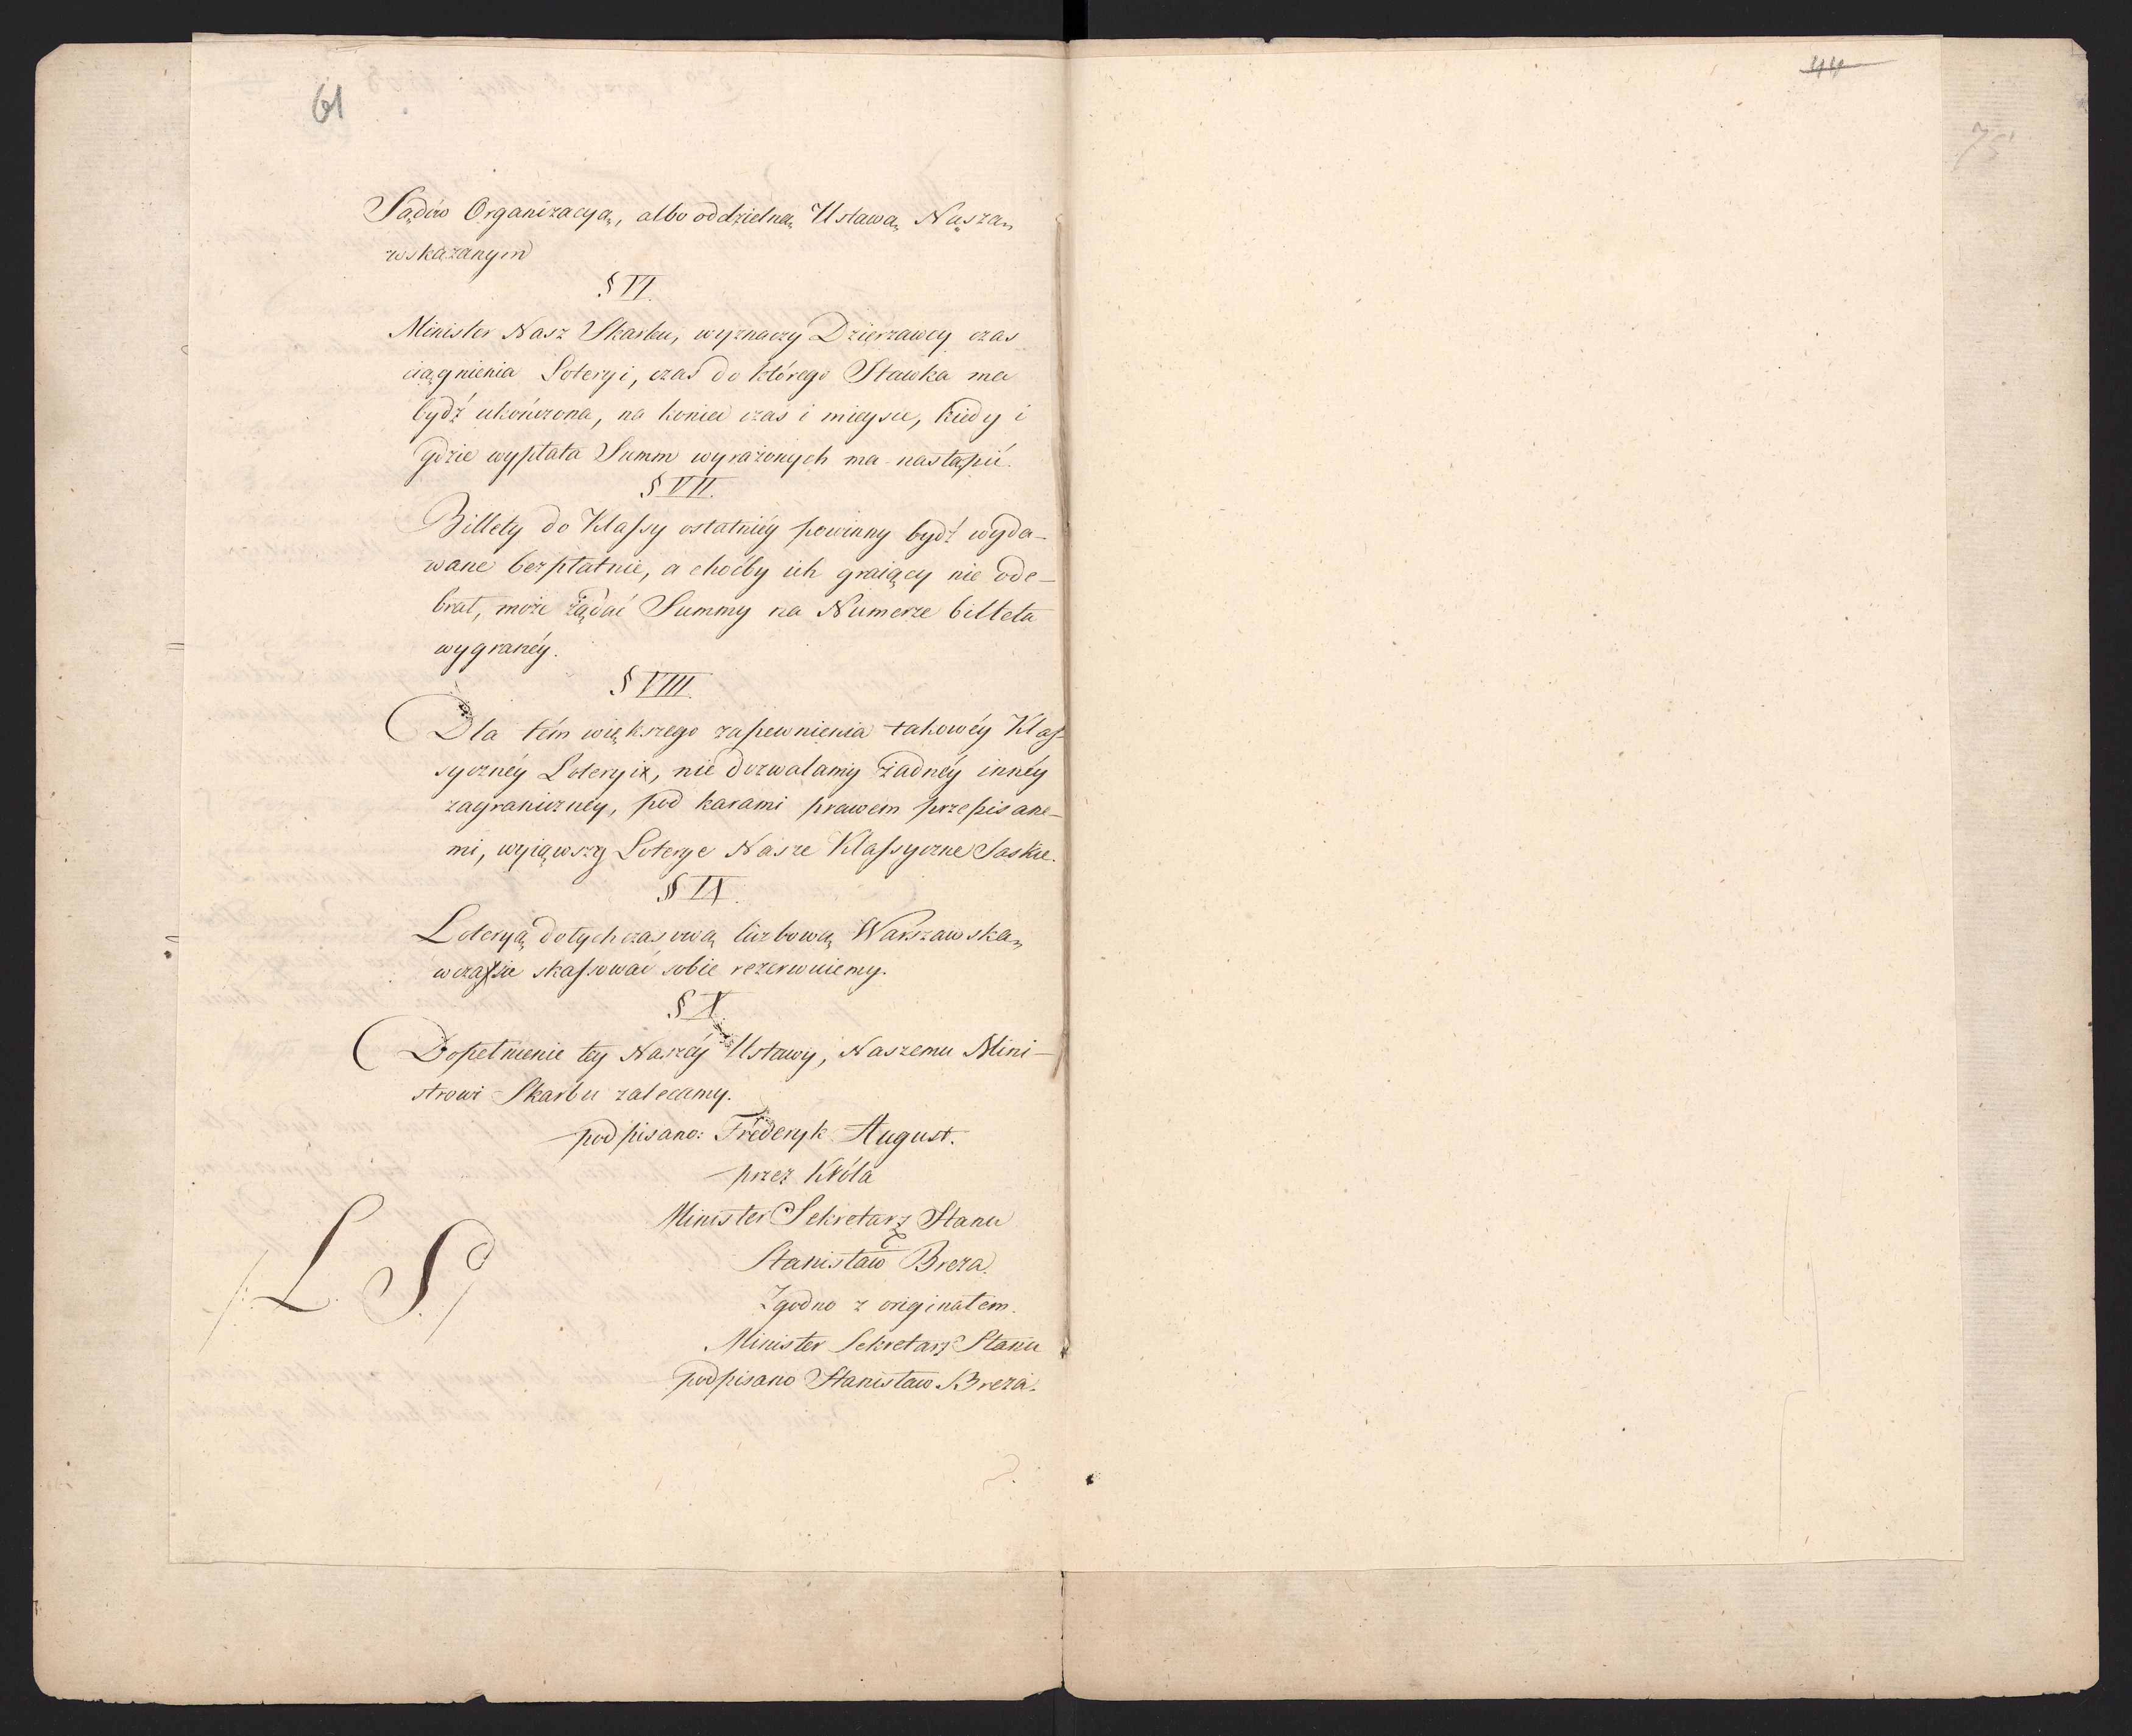 61
Sądów Organizacyą, albo oddzielną Ustawą Naszą
wskazanym
§ VI.
Minister Nasz Skarbu, wyznaczy Dzierzawcy czas
ciągnienia Loteryi, czas do którego Stawka ma
bydź ukończona, na koniec czas i mieysce, kiedy i
gdzie wypłata Summ wyrażonych ma nastąpić.
§ VII.
Billety do Klassy ostatniéy powinny bydź wyda-
wane bezpłatnie, a choćby ich graiący nie ode-
brał, może żądać Summy na Numerze billeta
wygranéy.
§ VIII.
Dla tém większego zapewnienia takowéy Klas-
syczney Loteryi, nie dozwalamy żadnéy innéy
zagraniczney, pod karami prawem przepisane-
mi, wyiąwszy Loterye Nasze Klassyczne Saskie.
§ IX.
Loteryą dotychczasową liczbową Warszawską
wczasie skassować sobie rezerwuiemy.
§ X.
Dopełnienie tey Naszéy Ustawy, Naszemu Mini-
strowi Skarbu zalecamy.
podpisano: Fréderyk August.
przez Króla
Minister Sekretarz Stanu
Stanisław Breza.
L. S.
Zgodno z originałem.
Minister Sekretarz Stanu
podpisano Stanisław Breza.
44
75